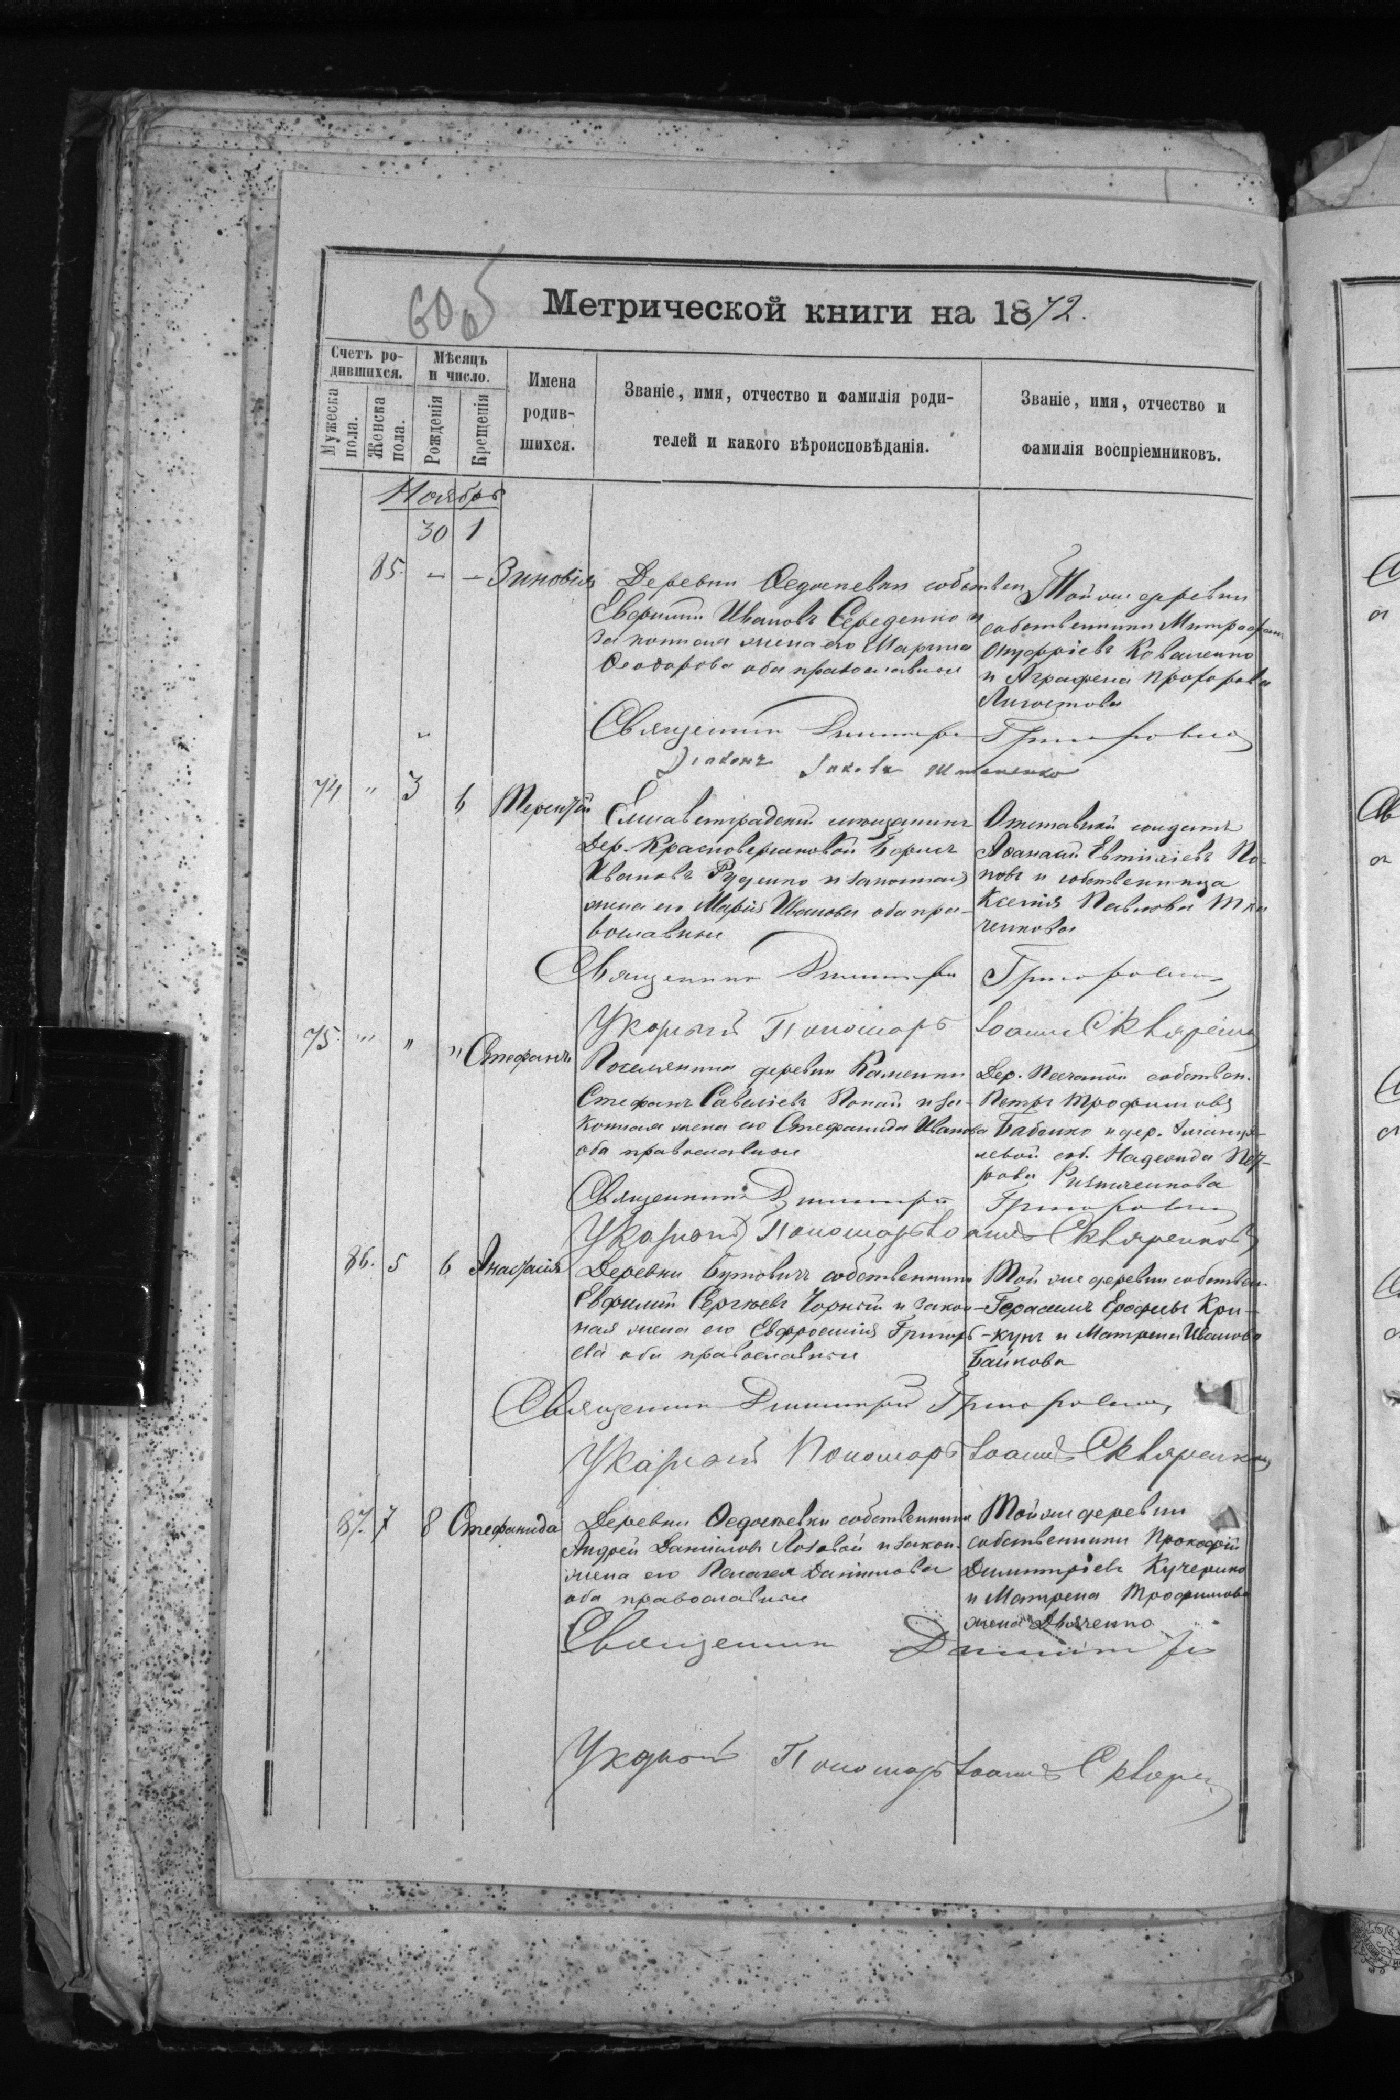 Метрической книги на 1872.
Счетъ ро-
дившихся.
Мѣсяцъ
и число.
Имена
родив-
шихся.
Званіе, имя, отчество и фамилія роди-
телей и какого вѣроисповѣданія.
Званіе, имя, отчество и
фамилія воспріемниковъ.
Мужеска
пола.
Женска
пола.
Рожденія
Крещенія
Ноябрь
30 1
85. – – Зиновія
Деревни Федоспевки собствен
Ивановъ Середенко и
законная жена его Марина
Ѳеодорова оба православные
Той же деревни
собственники
Онуфріевъ Коваленко
и Аграфена Прохорова
Священник Димитрій Григоровичъ
Діаконъ Іаковъ
74 " 3 6 Терентій
Елисаветградскій мещанинъ
Дер. Красновершиковой Борисъ
Ивановъ Руденко и законная
жена его Марія Иванова оба пра-
вославные
Отставный солдатъ
Аѳанасій Евтихіевъ По-
повъ и собственница
Ксенія Павлова Тка
ченкова
Священникъ Димитрій Григоровичъ
Указный Пономарь Іоаннъ Скляренко
75. " " " Стефанъ
Поселянинъ деревни Каменки
Стефанъ Савеліевъ Попай и за-
конная жена его Стефанида Иванова
оба православные
Дер. Песчаной собствен.
Петръ Трофимовъ
Бабенко и дер.
левой соб. Надежда Пет-
рова
Священникъ Димитрій Григоровичъ
Указный Пономарь Іоаннъ Скляренко
86. 5 6 Анастасія
Деревни Бутовичъ собственникъ
Евфимій Сергѣевъ Чорный и закон-
ная жена его Евфросинія Григорь-
ева оба православные
Той же деревни собствен.
Герасимъ Ерофеевъ Кри-
кунъ и Матрена Иванова
Байкова
Священникъ Димитрій Григоровичъ
Указный Пономарь Іоаннъ Скляренко
87. 7 8 Стефанида
Деревни Федостевки собственникъ
Андрей Даниловъ Лозовой и закон.
жена его Пелагея Данилова
оба православные
Той же деревни
собственники Прокофій
Димитріевъ Кучеренко
и Матрена Трофимова
жена Дьяченко
Священник Димитрій
Указной Пономарь Іоаннъ Скляре